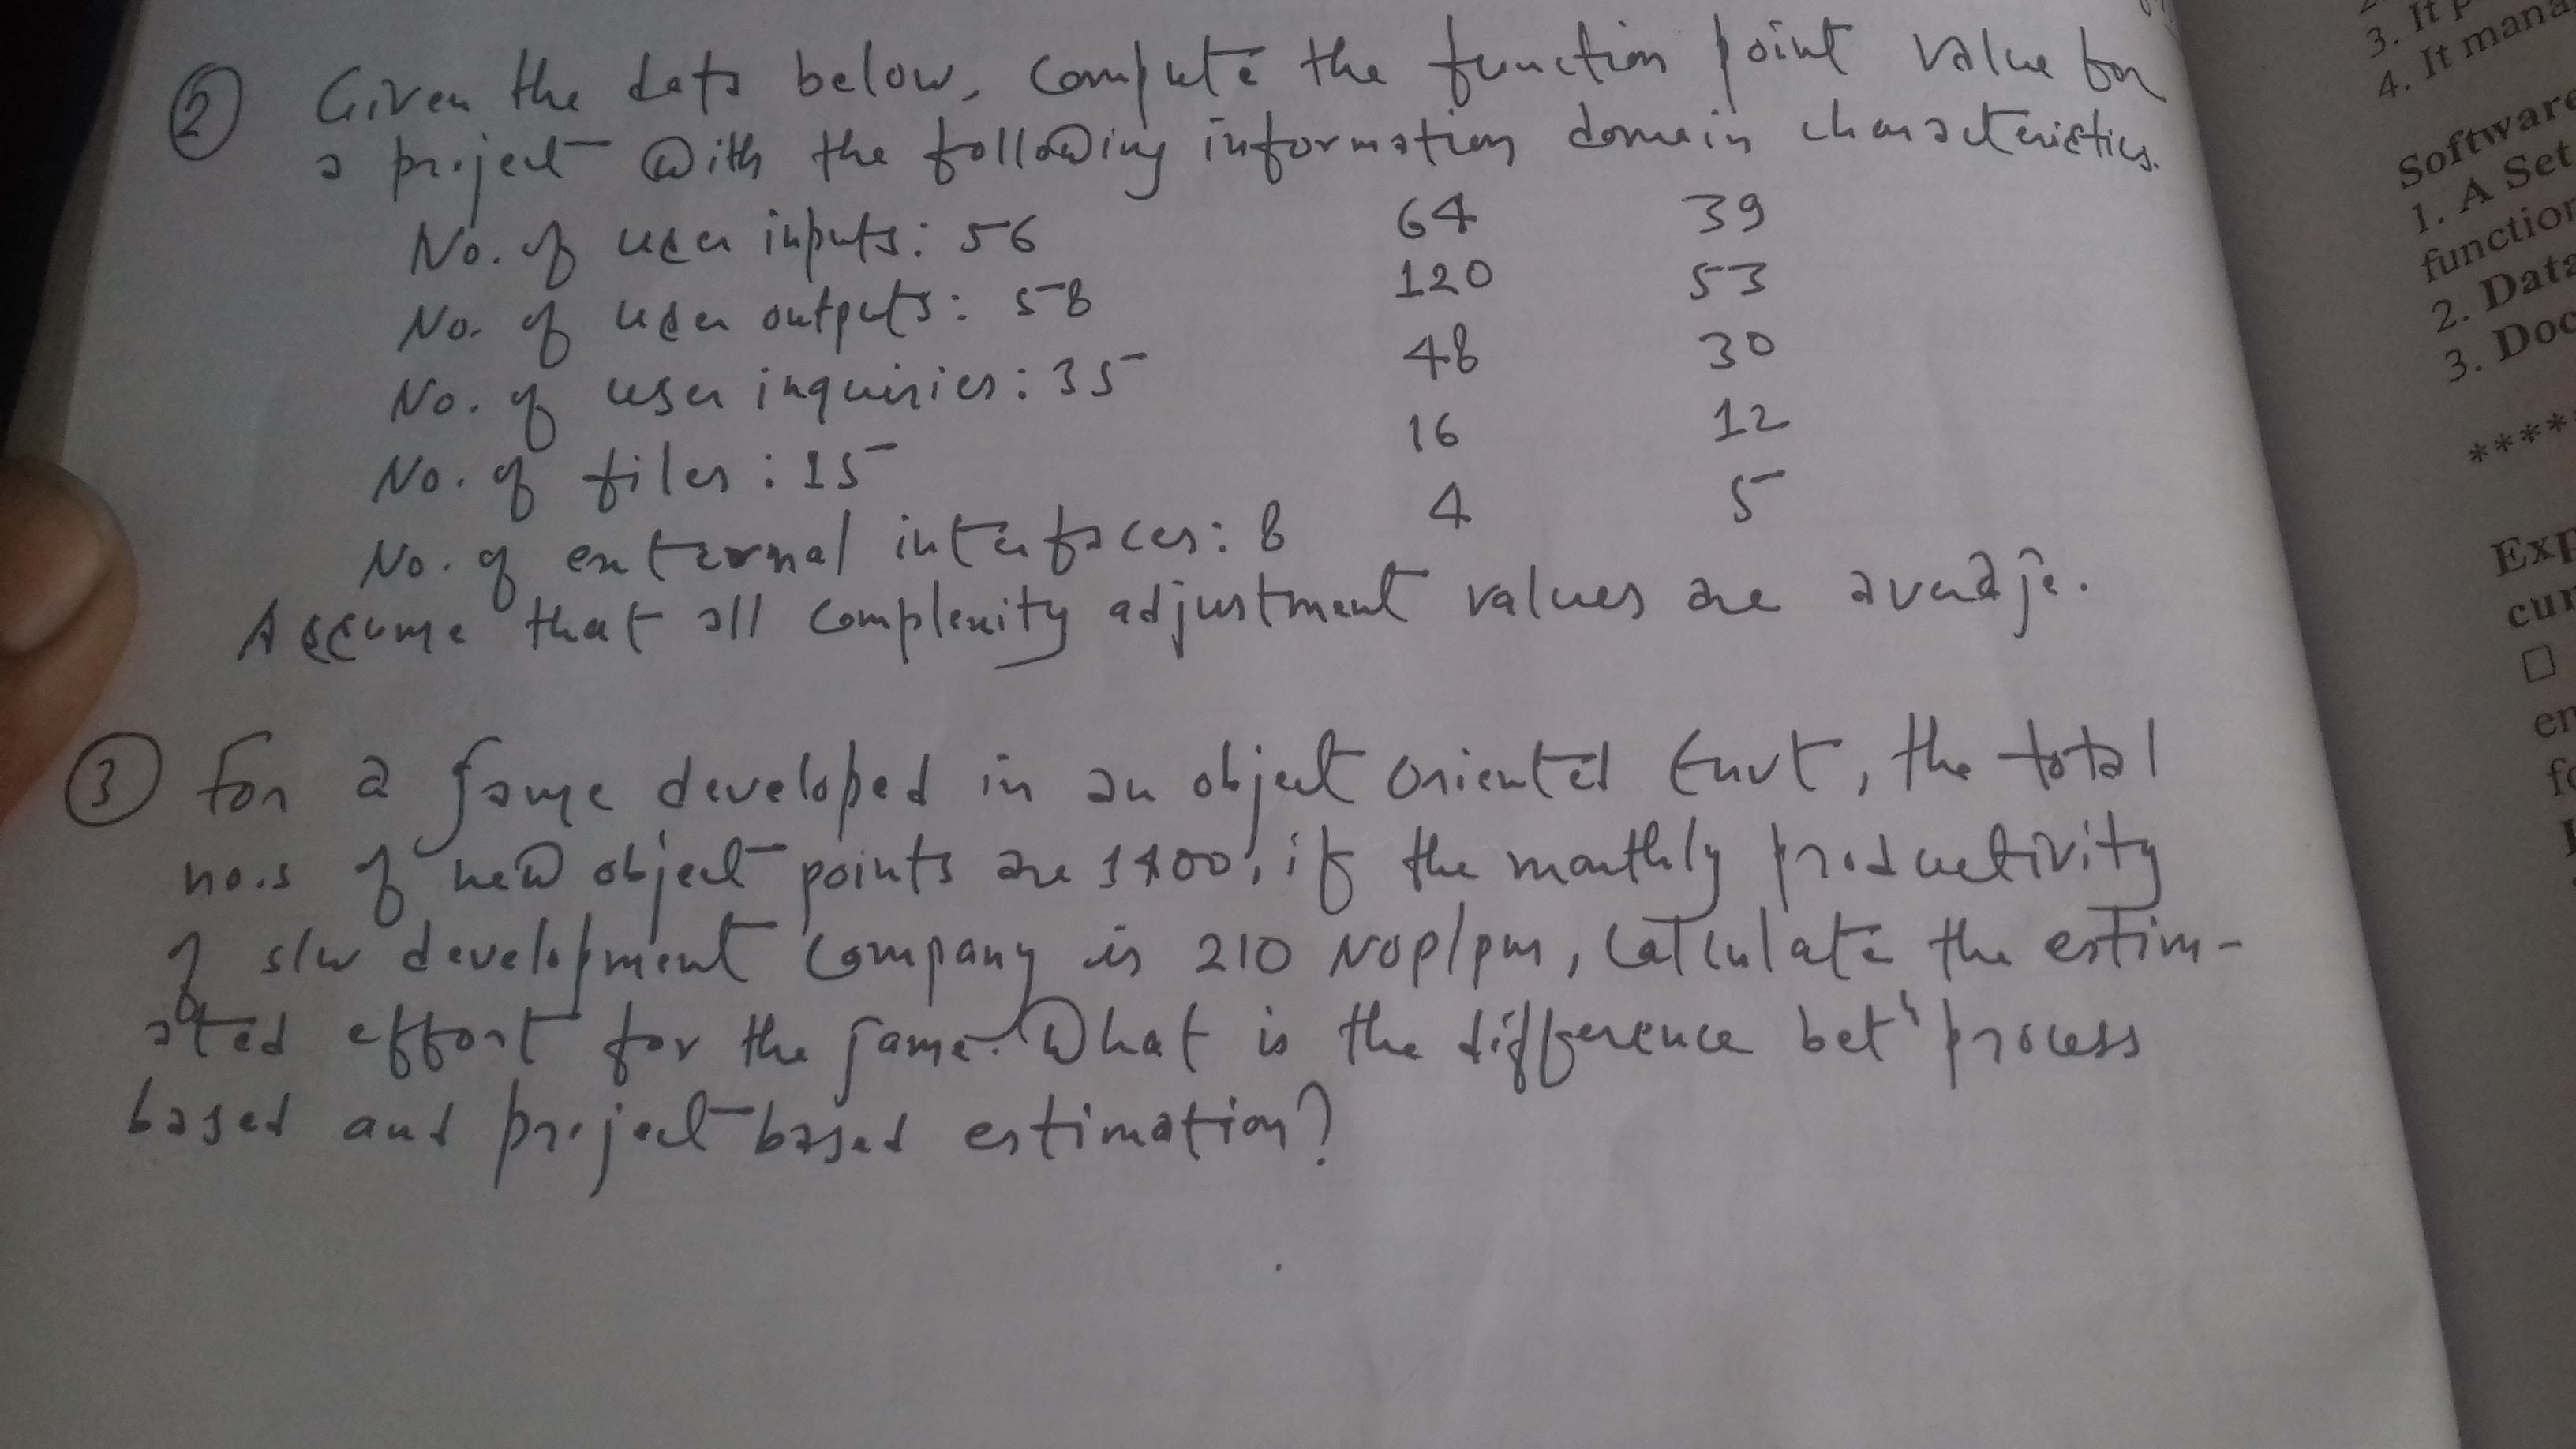 ② Given the data below, compute the function point value for
a project with the following information domain characteristics.
No. of user inputs: 56 64 39
No. of user outputs: 58 120 53
No. of user inquiries: 35 48 30
No. of files: 15 16 12
No. of external interfaces: 8 4 5
Assume that all complexity adjustment values are average.
③ For a game developed in an object oriented Envt, the total
no.s of new object points are 1400, if the monthly productivity
of s/w development company is 210 NOP/pm, calculate the estim-
ated effort for the game. What is the difference betn process
based and project based estimation?
3. It p
4. It mana
Software
1. A Set
function
2. Data
3. Doc
****
Exp
cur
en
fo